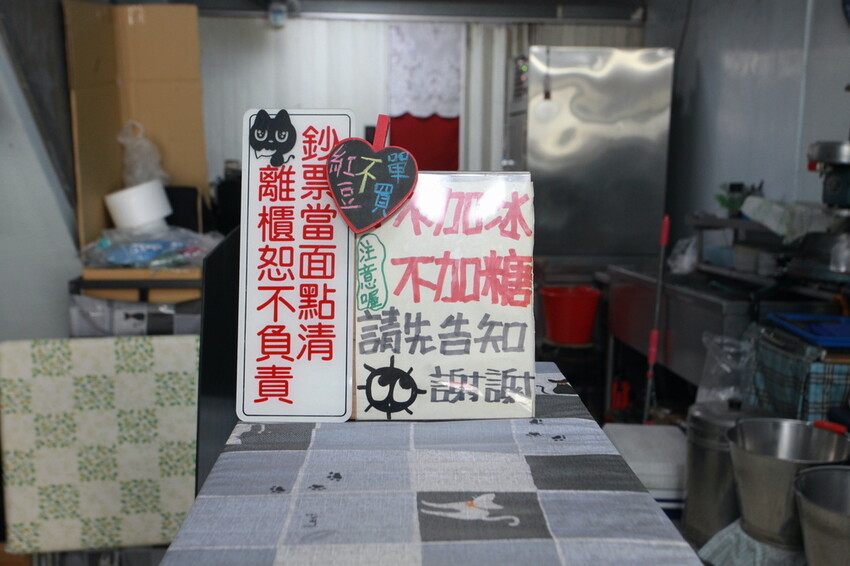 鈔票當面點清
離櫃恕不負責
紅豆
不
單買
不加冰
不加糖
注意喔
請先告知
謝謝